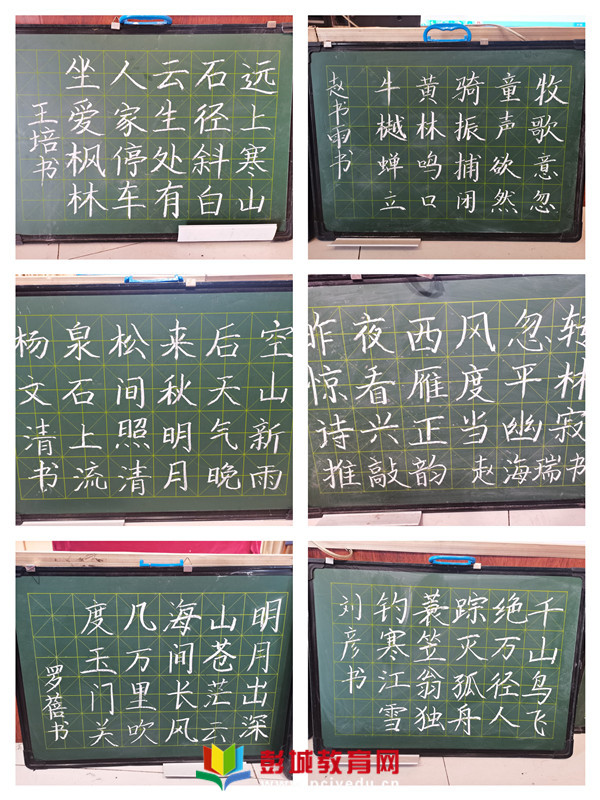 远上寒山
石径斜白
云生处有
人家停车
坐爱枫林
王培书
牧童骑黄牛
歌声振林樾
意欲捕鸣蝉
忽然闭口立
赵书雨书
空山新雨
后天气晚
来秋明月
松间照清
泉石上流
杨文清书
昨夜西风忽转
惊看雁度平林
诗兴正当幽寂
推敲韵 赵海瑞书
明月出深
山苍茫云
海间长风
几万里吹
度玉门关
罗蓓书
千山鸟飞
绝万径人
踪灭孤舟
蓑笠翁独
钓寒江雪
刘彦书
彭城教育网